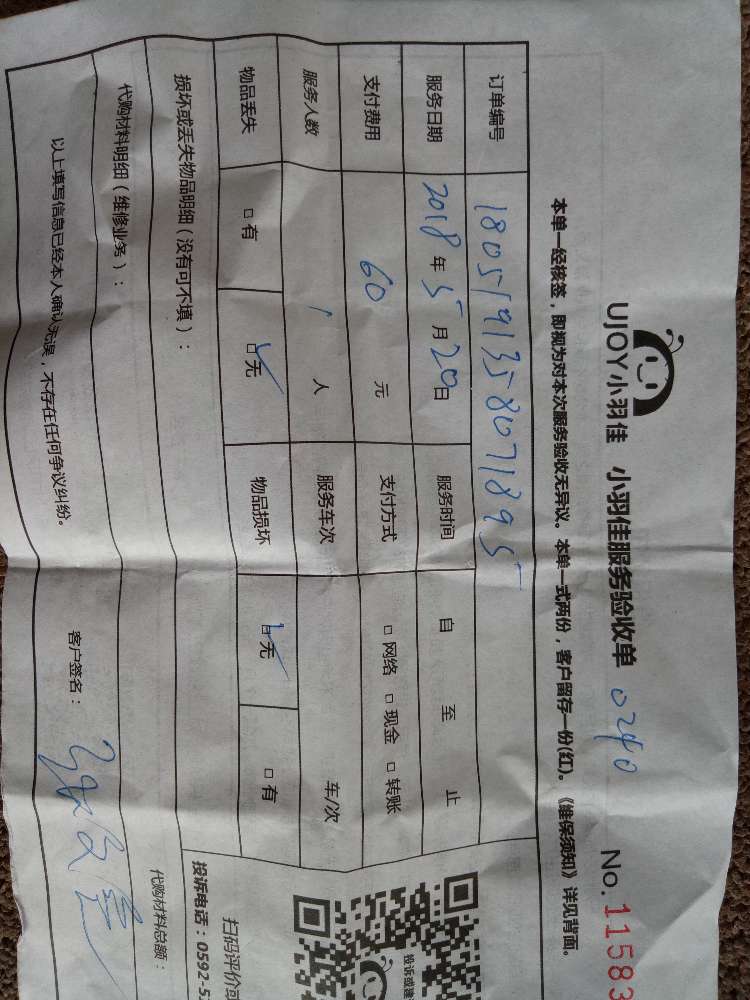 UJOY小羽佳 小羽佳服务验收单 0240 No. 11583
本单一经核签，即视为对本次服务验收无异议。本单一式两份，客户留存一份(红)。《维保须知》详见背面。
订单编号 1805191358071895
服务日期 2018年5月20日 服务时间 自 至 止
支付费用 60元 支付方式 □网络 □现金 □转账
服务人数 1人 服务车次 车/次
物品丢失 □有 □无 物品损坏 □无 □有
损坏或丢失物品明细（没有可不填）：
代购材料明细（维修业务）： 代购材料总额：
以上填写信息已经本人确认无误，不存在任何争议纠纷。 客户签名：
扫码评价或
投诉电话：0592-5
投诉或建